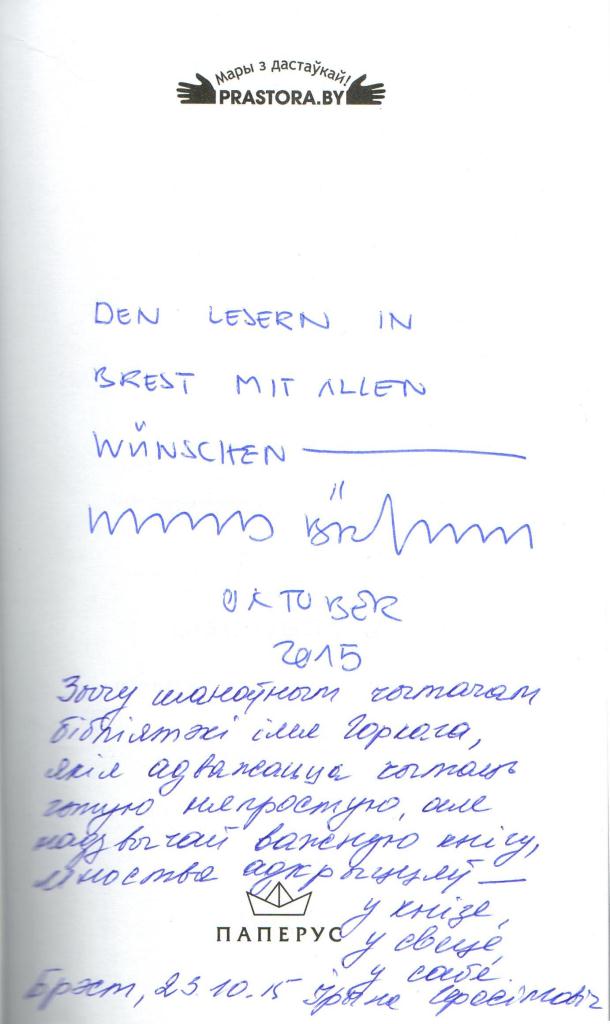 Мары з дастаўкай!
PRASTORA.BY
DEN LESERN IN
BREST MIT ALLEN
WÜNSCHEN
OKTOBER
2015
Зычу шаноўным чытачам
бібліятэкі імя Горкага,
якія адважацца чытаць
гэтую няпростую, але
надзвычай важную кнігу,
мноства адкрыццяў —
у кнізе,
ПАПЕРУС
у свеце,
у сабе.
Брэст, 23.10.15 Ірына Герасімовіч